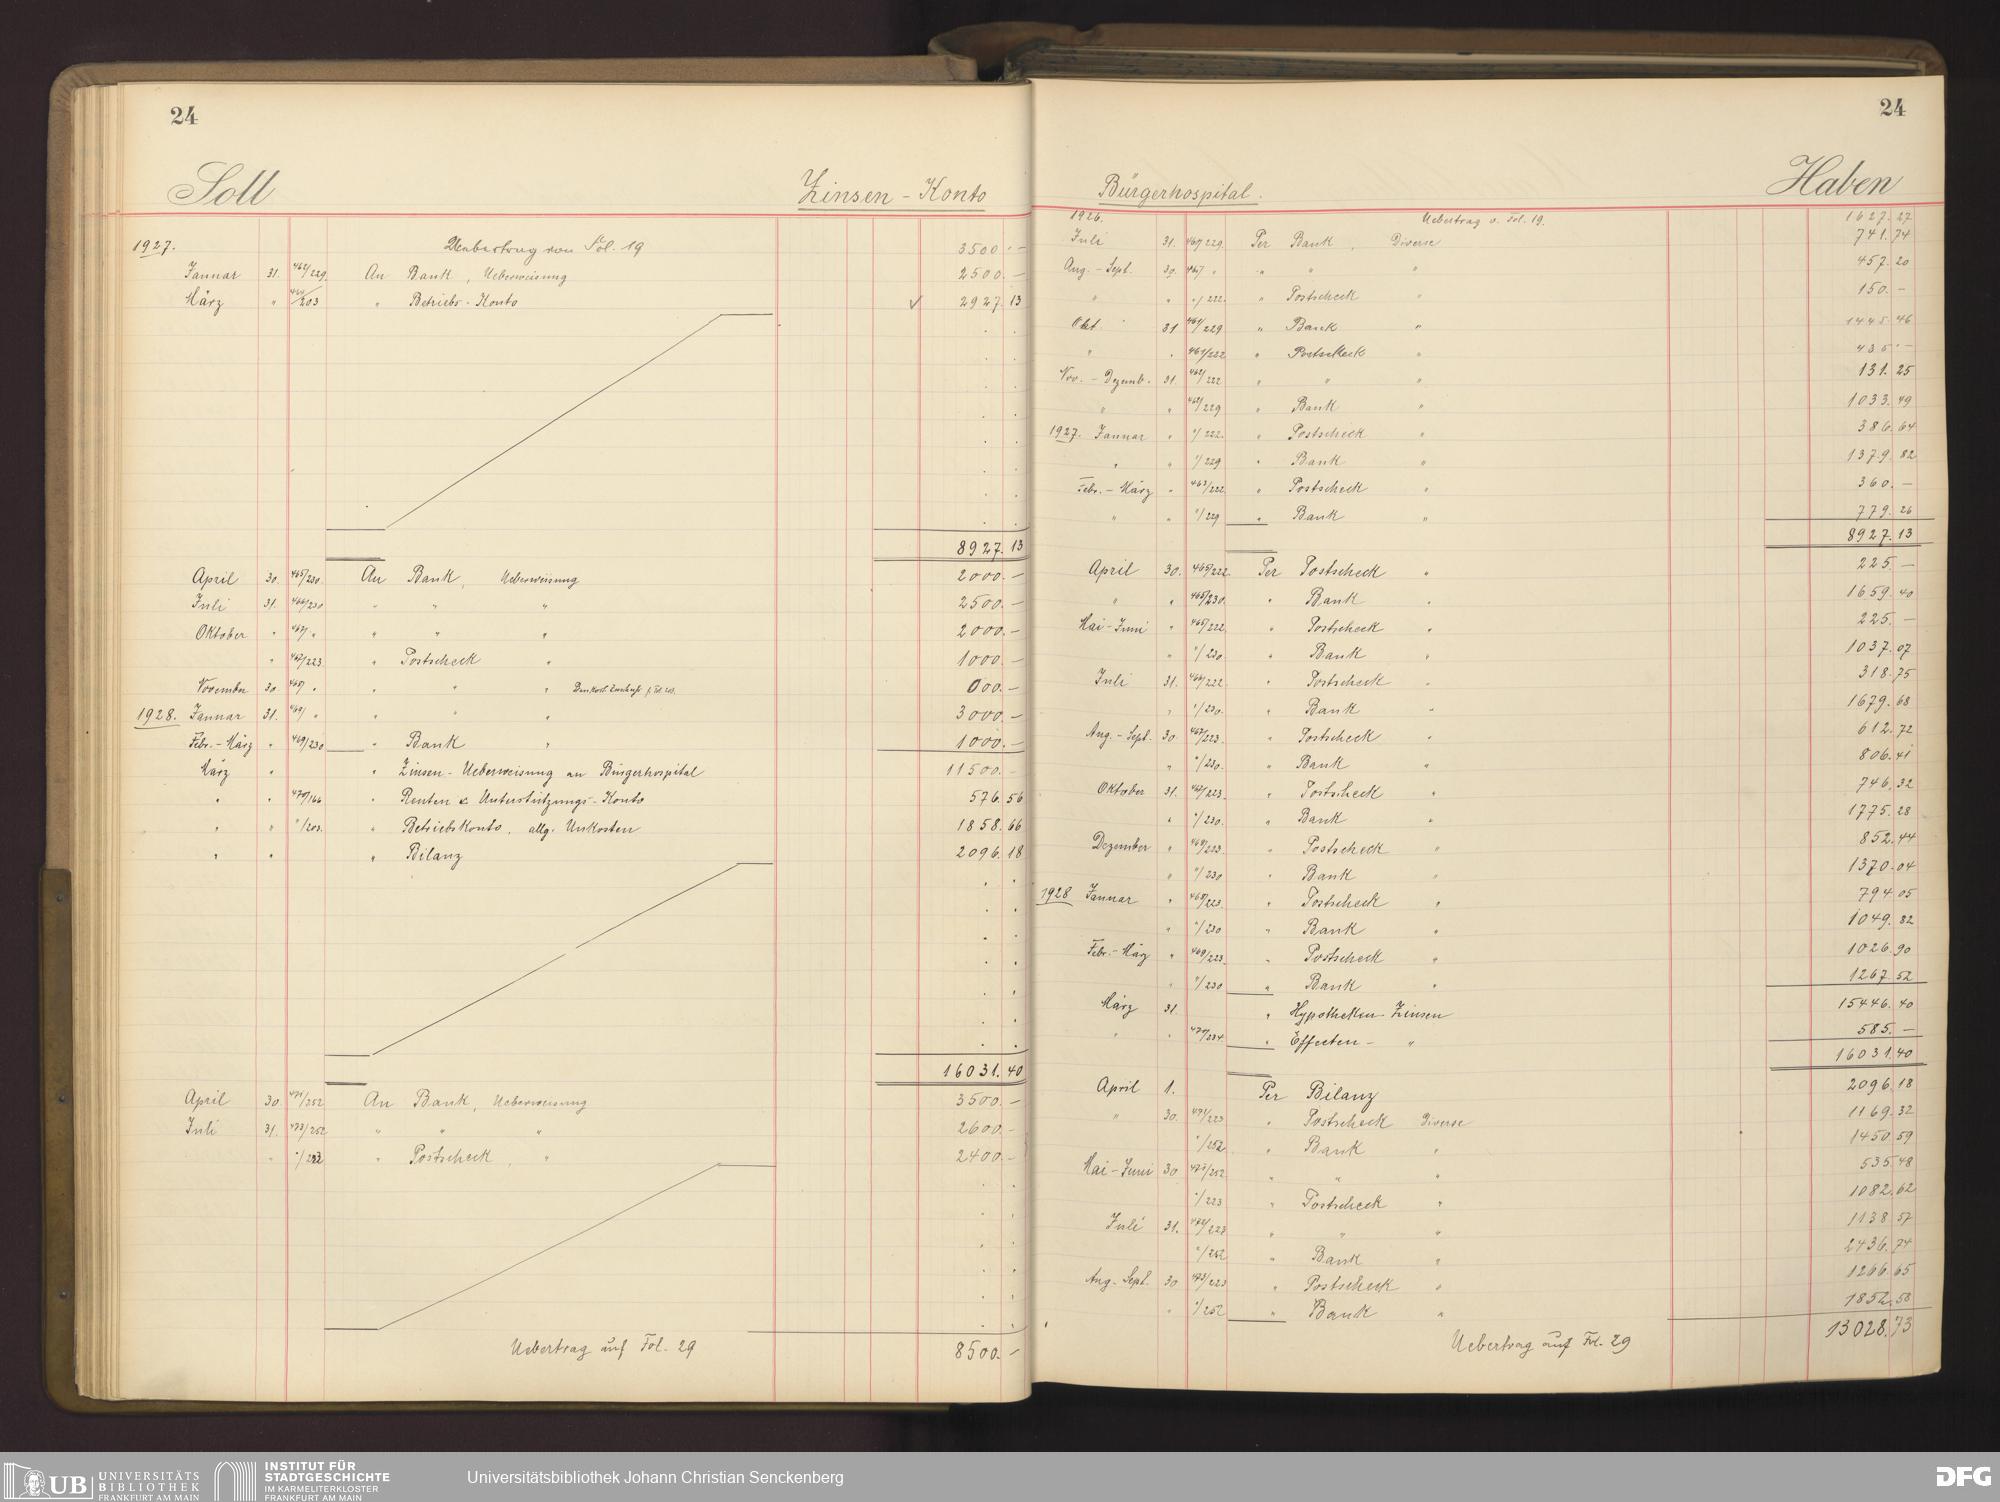 24
Soll
Zinsen - Konto
1927. Uebertrag von Fol. 19 3500. -
Januar 31. 462/229. An Bank, Ueberweisung 2500. -
März " /203 " Betriebs-Konto ✓ 2927. 13
8927. 13
April 30. 465/230. An Bank, Ueberweisung 2000. -
Juli 31. 466/230 " " " 2500. -
Oktober " 467/ " " " " 2000. -
" 467/223. " Postscheck " 1000. -
November 30 468/ " " " " 000. -
1928. Januar 31. 469/ " " " " 3000. -
Febr. - März " 469/230 " Bank " 1000. -
März " " Zinsen - Ueberweisung an Bürgerhospital 11500. -
" " 470/166 " Renten & Unterstützungs-Konto 576. 56
" " "/203. " Betriebskonto, allg. Unkosten 1858. 66
" " " Bilanz 2096. 18
16031. 40
April 30. 471/252 An Bank, Ueberweisung 3500. -
Juli 31. 473/252 " " " 2600. -
" "/223 " Postscheck, " 2400. -
Uebertrag auf Fol. 29 8500. -
24
Bürgerhospital.
Haben
1926. Uebertrag v. Fol. 19. 1627. 27
Juli 31. 460/229. Per Bank, Diverse 741. 74
Aug. - Sept. 30. 460/ " " " " 457. 20
" " "/222. " Postscheck " 150. -
Okt. 31 461/229 " Bank " 1445. 46
" " 461/222 " Postscheck " 435. -
Nov. - Dezemb. 31. 462/222 " " " 131. 25
" " 462/229 " Bank " 1033. 49
1927. Januar " "/222. " Postscheck " 386. 64
" " "/229 " Bank " 1379. 82
Febr. - März " 463/222. " Postscheck " 360. -
" " "/229 " Bank " 779. 26
8927. 13
April 30. 465/222. Per Postscheck " 225. -
" " 465/230. " Bank " 1659. 40
Mai - Juni " 465/222. " Postscheck " 225. -
" "/230. " Bank " 1037. 07
Juli 31. 466/222. " Postscheck " 318. 75
" "/230. " Bank " 1679. 68
Aug. - Sept. 30. 467/223. " Postscheck " 612. 72
" "/230. " Bank " 806. 41
Oktober 31. 467/223. " Postscheck " 746. 32
" "/230. " Bank " 1775. 28
Dezember " 468/223. " Postscheck " 852. 44
" "/230 " Bank " 1370. 04
1928 Januar " 468/223. " Postscheck " 794. 05
" "/230 " Bank " 1049. 82
Febr. - März " 469/223. " Postscheck " 1026. 90
" "/230 " Bank " 1267. 52
März 31. " Hypotheken - Zinsen 15446. 40
" " 470/234 " Effecten - " 585. -
16031. 40
April 1. Per Bilanz 2096. 18
" 30. 471/223 " Postscheck Diverse 1169. 32
"/252. " Bank " 1450. 59
Mai - Juni 30. 472/252 " " " 535. 48
"/223 " Postscheck " 1082. 62
Juli 31. 472/223 " " " 1138. 57
"/252 " Bank " 2436. 74
Aug. - Sept. 30 473/223 " Postscheck " 1266. 65
" "/252 " Bank " 1852. 58
Uebertrag auf Fol. 29 13028. 73
UB UNIVERSITÄTS
BIBLIOTHEK
FRANKFURT AM MAIN
INSTITUT FÜR
STADTGESCHICHTE
IM KARMELITERKLOSTER
FRANKFURT AM MAIN
Universitätsbibliothek Johann Christian Senckenberg
DFG